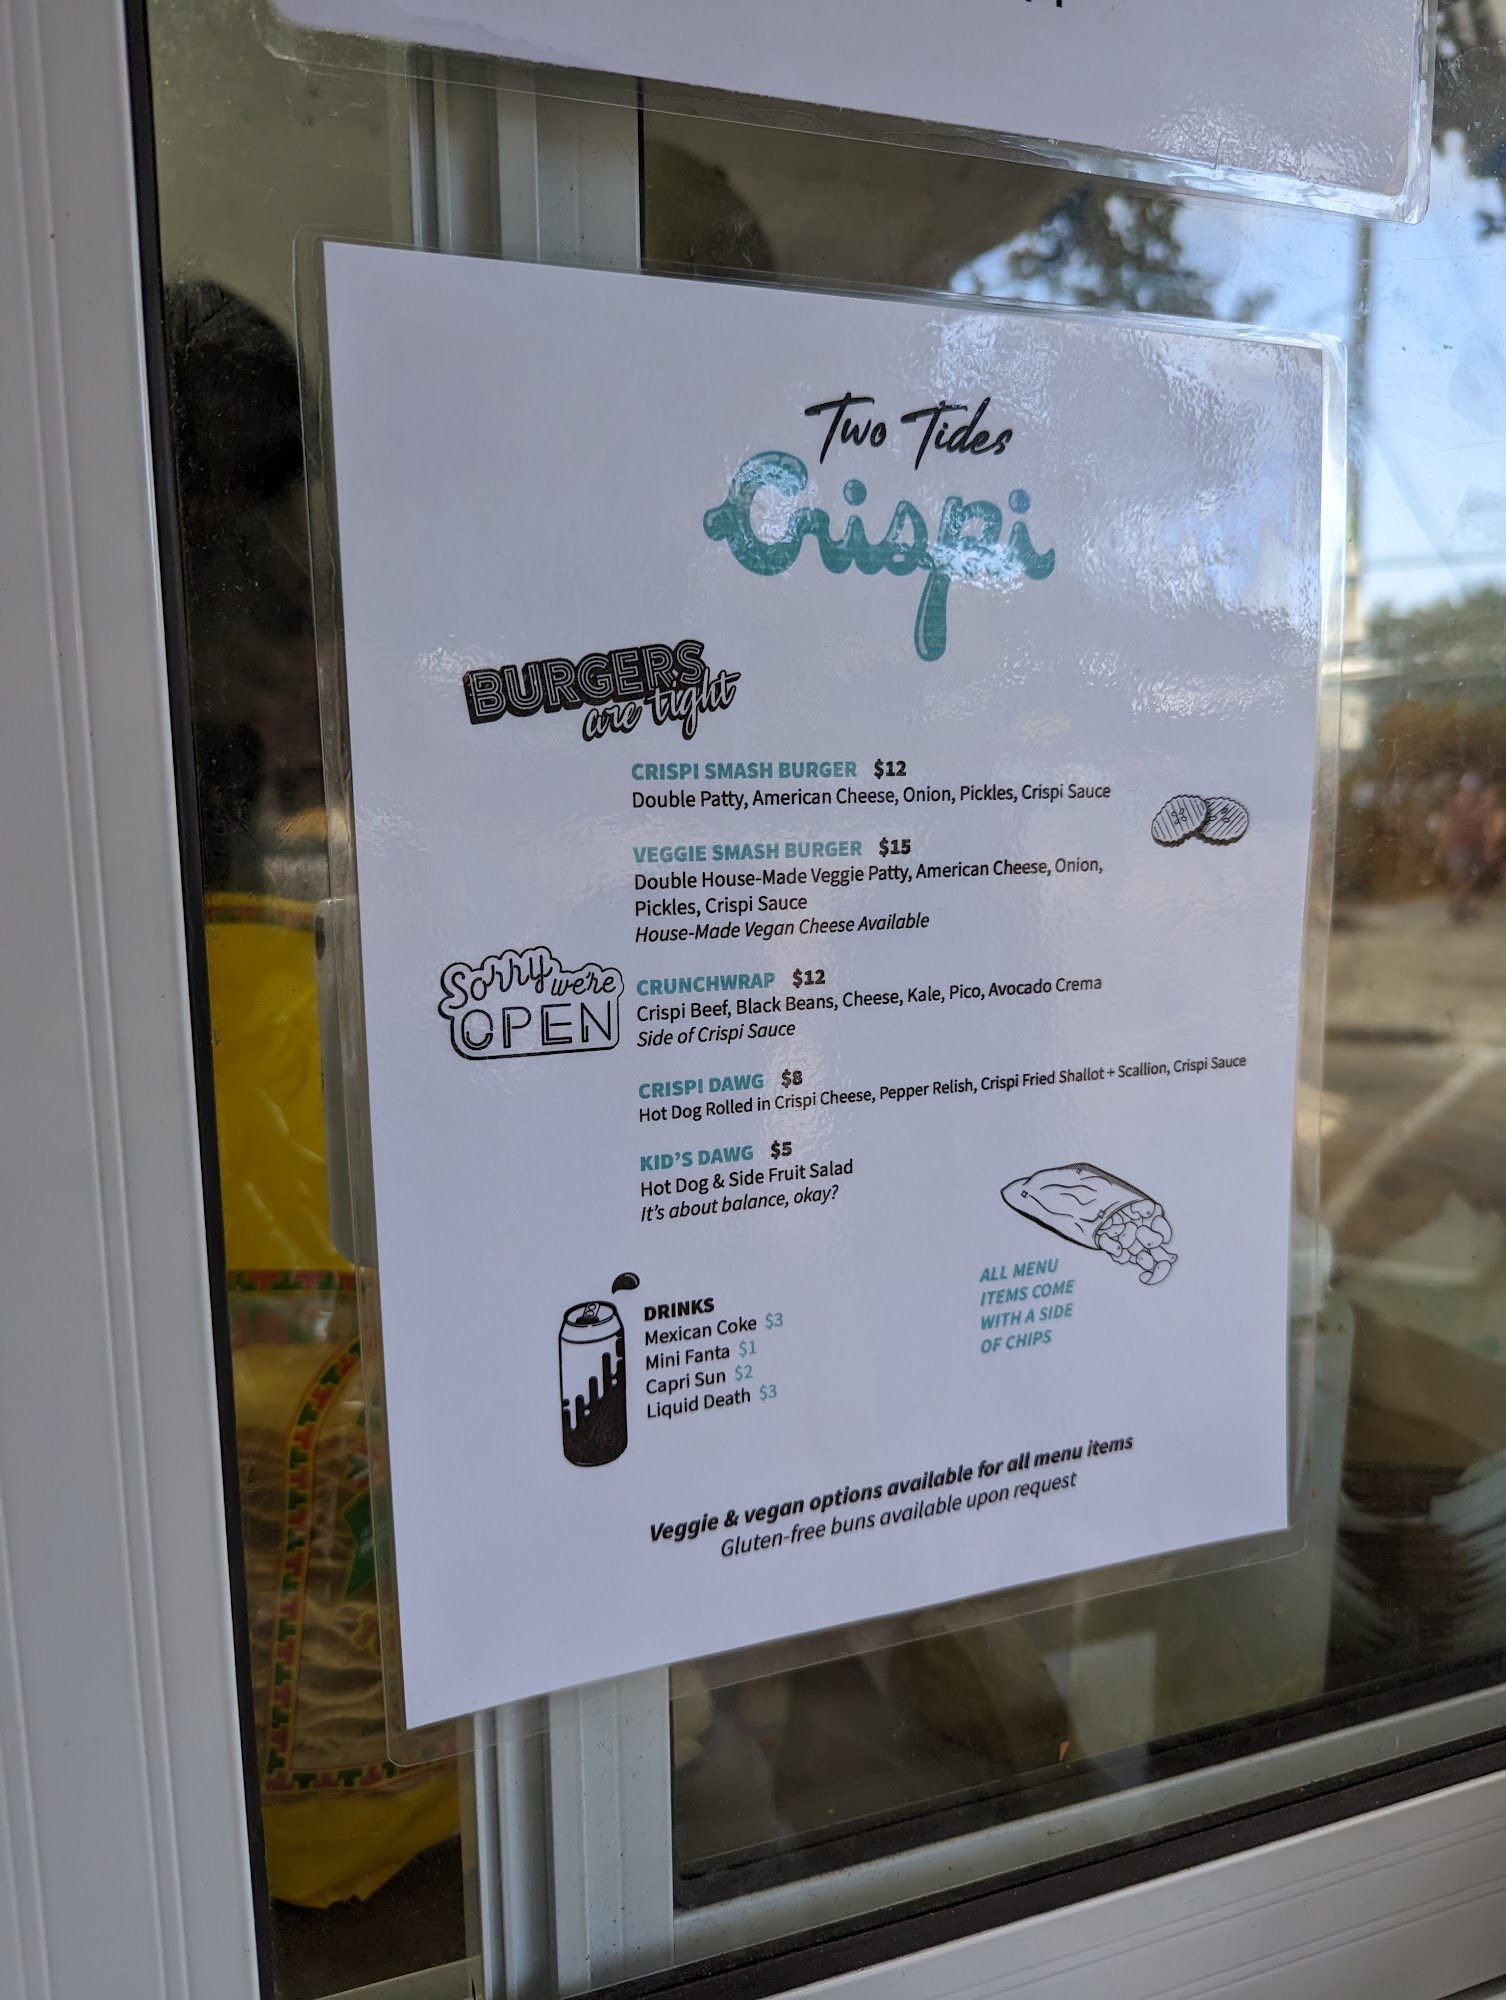 Two Tides
Crispi
BURGERS
are tight
CRISPI SMASH BURGER $12
Double Patty, American Cheese, Onion, Pickles, Crispi Sauce
VEGGIE SMASH BURGER $15
Double House-Made Veggie Patty, American Cheese, Onion,
Pickles, Crispi Sauce
House-Made Vegan Cheese Available
Sorry we're
OPEN
CRUNCHWRAP $12
Crispi Beef, Black Beans, Cheese, Kale, Pico, Avocado Crema
Side of Crispi Sauce
CRISPI DAWG $8
Hot Dog Rolled in Crispi Cheese, Pepper Relish, Crispi Fried Shallot + Scallion, Crispi Sauce
KID'S DAWG $5
Hot Dog & Side Fruit Salad
It's about balance, okay?
DRINKS
Mexican Coke $3
Mini Fanta $1
Capri Sun $2
Liquid Death $3
ALL MENU
ITEMS COME
WITH A SIDE
OF CHIPS
Veggie & vegan options available for all menu items
Gluten-free buns available upon request